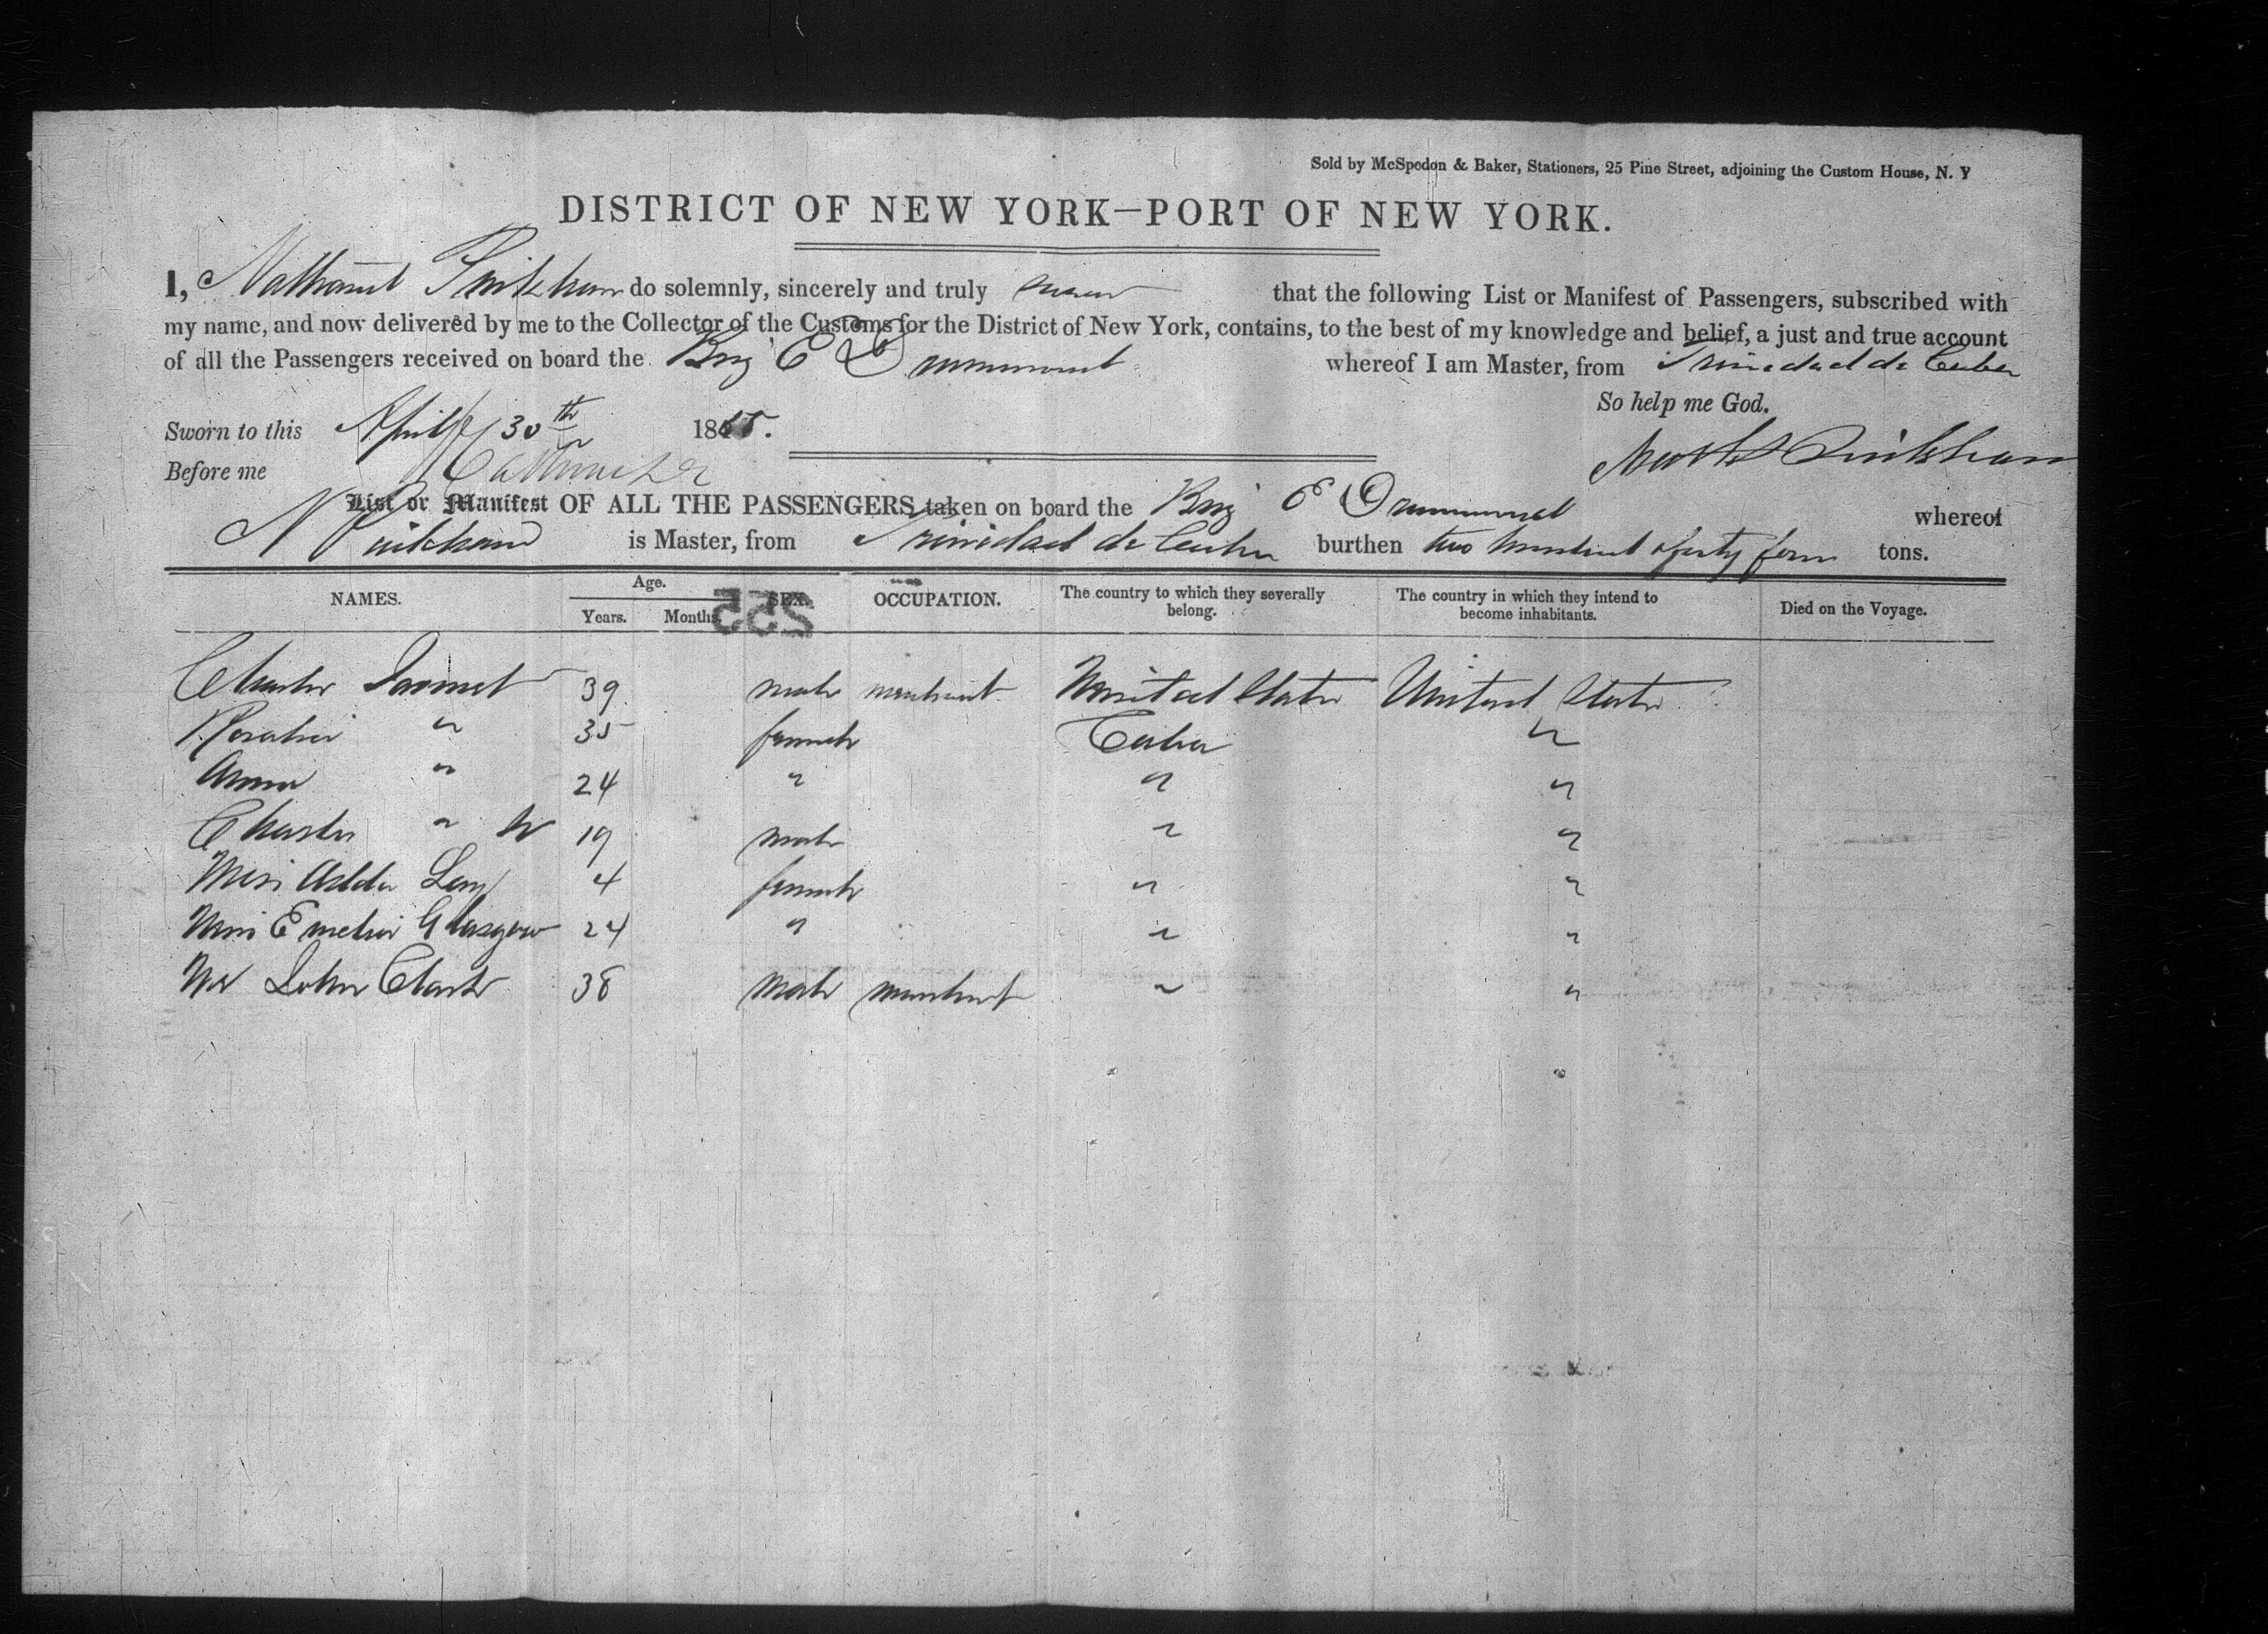 Sold by McSpedon & Baker, Stationers, 25 Pine Street, adjoining the Custom House, N. Y
DISTRICT OF NEW YORK—PORT OF NEW YORK.
I, Nathaniel Pinkham do solemnly, sincerely and truly swear that the following List or Manifest of Passengers, subscribed with
my name, and now delivered by me to the Collector of the Customs for the District of New York, contains, to the best of my knowledge and belief, a just and true account
of all the Passengers received on board the Brig E Drummond whereof I am Master, from Trinidad de Cuba
So help me God.
Sworn to this April 30th 18
Before me
Pinkham
List or Manifest OF ALL THE PASSENGERS taken on board the Brig E Drummond whereof
N Pinkham is Master, from Trinidad de Cuba burthen two hundred & forty four tons.
NAMES. Age. Years. Months SEX. OCCUPATION. The country to which they severally belong. The country in which they intend to become inhabitants. Died on the Voyage.
255
Charles 39 male merchant United States United States
Rosalia " 35 female Cuba "
Anna " 24 " " "
Charles " Jr 19 male " "
Miss Adda 4 female " "
Miss Emelia Glasgow 24 " " "
Mr John Clark 38 male merchant " "